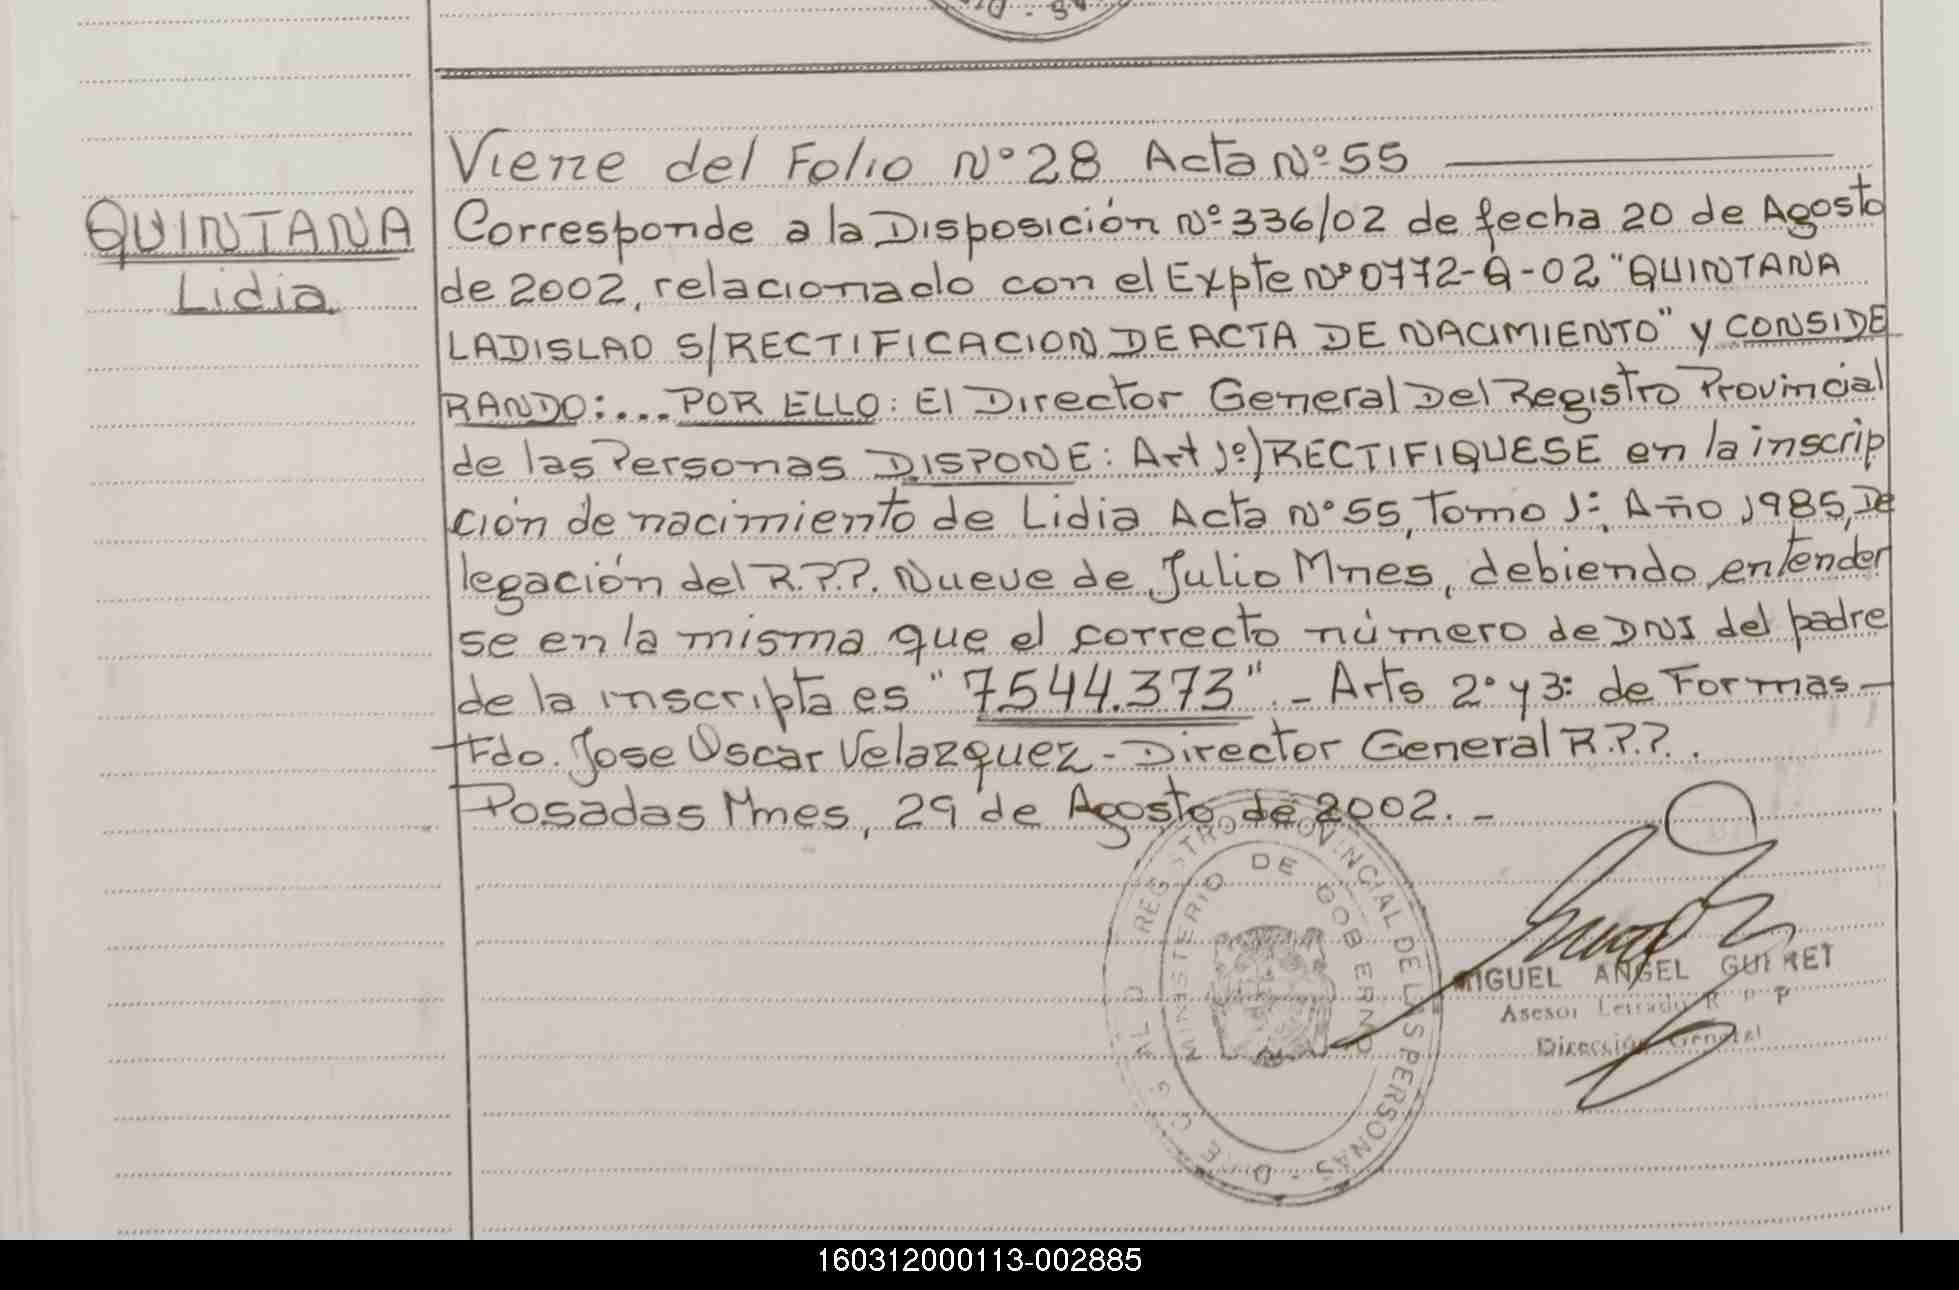 Viene del Folio Nº 28 Acta Nº 55
QUINTANA
Lidia
Corresponde a la Disposición Nº 336/02 de fecha 20 de Agosto
de 2002, relacionado con el Expte Nº 0772-Q-02 "QUINTANA
LADISLAO S/RECTIFICACION DE ACTA DE NACIMIENTO" y CONSIDE
RANDO:... POR ELLO: El Director General Del Registro Provincial
de las Personas DISPONE: Art 1º) RECTIFIQUESE en la inscrip
ción de nacimiento de Lidia Acta Nº 55, Tomo 1º, Año 1985, De
legación del R.P.P. Nueve de Julio Mnes, debiendo entender
se en la misma que el correcto número de DNI del padre
de la inscripta es "7544.373". - Arts 2º y 3º de Formas -
Fdo. Jose Oscar Velazquez - Director General R.P.P.
Posadas Mnes, 29 de Agosto de 2002. -
REGISTRO PROVINCIAL DE LAS PERSONAS
MINISTERIO DE GOBIERNO
MIGUEL ANGEL
Asesor Letrado R P P
Dirección General
160312000113-002885